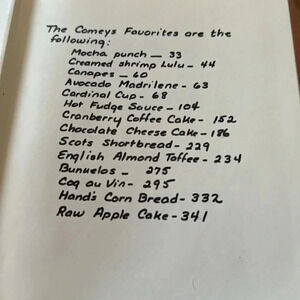 The Comeys Favorites are the
following:
Mocha punch — 33
Creamed shrimp Lulu - 44
Canapes - 60
Avocado Madrilene - 63
Cardinal Cup - 68
Hot Fudge Sauce - 104
Cranberry Coffee Cake - 152
Chocolate Cheese Cake - 186
Scots Shortbread - 229
English Almond Toffee - 234
Bunuelos - 275
Coq au Vin - 295
Hand's Corn Bread - 332
Raw Apple Cake - 341